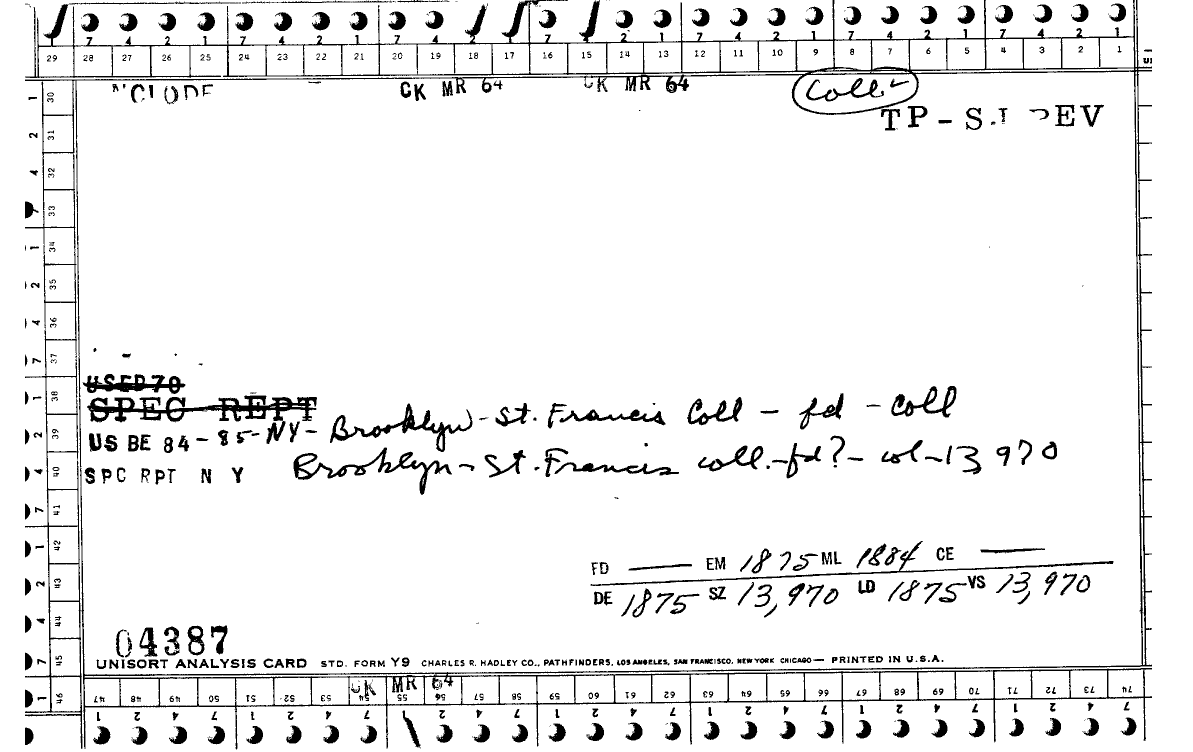 7 4 2 1 7 4 2 1 7 4 2 7 2 1 7 4 2 1 7 4 2 1 7 4 2 1
29 28 27 26 25 24 23 22 21 20 19 18 17 16 15 14 13 12 11 10 9 8 7 6 5 4 3 2 1
CK MR 64 CK MR 64 Coll
TP-S
1 30
2 31
4 32
7 33
1 34
2 35
4 36
7 37
USED 70
1 38
SPEC REPT
US BE 84-85-NY- Brooklyn-St. Francis Coll - fd - coll
2 39
SPC RPT N Y Brooklyn-St. Francis coll.-fd?-col-13 970
4 40
7 41
1 42
FD — EM 1875 ML 1884 CE —
2 43
DE 1875 SZ 13,970 LD 1875 VS 13,970
4 44
04387
7 45
UNISORT ANALYSIS CARD STD. FORM Y9 CHARLES R. HADLEY CO., PATHFINDERS, LOS ANGELES, SAN FRANCISCO, NEW YORK CHICAGO — PRINTED IN U.S.A.
CK MR 64
1 46
47 48 49 50 51 52 53 54 55 56 57 58 59 60 61 62 63 64 65 66 67 68 69 70 71 72 73 74
1 2 4 7 1 2 4 7 2 4 7 1 2 4 7 1 2 4 7 1 2 4 7 1 2 4 7